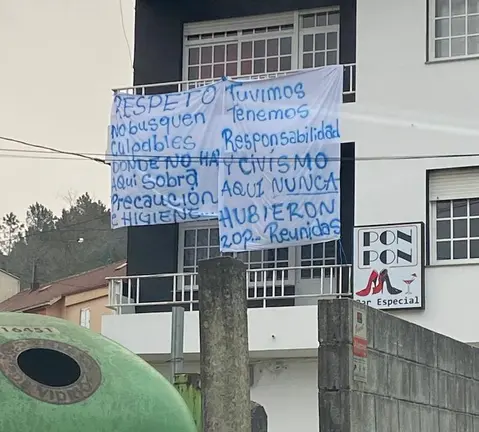 RESPETO
No busquen
culpables
DONDE NO HAY
Aqui sobra
Precaución
e HIGIENE
Tuvimos
Tenemos
Responsabilidad
Y CIVISMO
AQUI NUNCA
HUBIERON
20p... Reunidas
PON
PON
Bar Especial
16451
VIDRIO